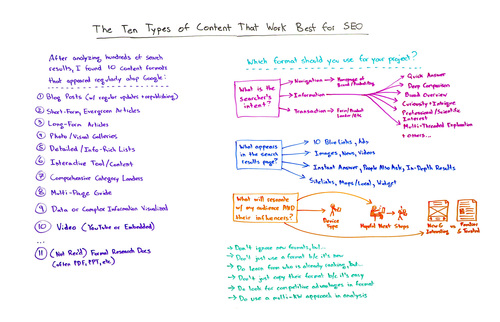 The Ten Types of Content That Work Best for SEO
After analyzing hundreds of search
results, I found 10 content formats
that appeared regularly atop Google:
① Blog Posts (w/ regular updates + republishing)
② Short-Form, Evergreen Articles
③ Long-Form Articles
④ Photo/Visual Galleries
⑤ Detailed/Info-Rich Lists
⑥ Interactive Tool/Content
⑦ Comprehensive Category Landers
⑧ Multi-Page Guide
⑨ Data or Complex Information Visualized
⑩ Video (YouTube or Embedded)
...
⑪ (Not Rec'd) Formal Research Docs
(often PDF, PPT, etc)
Which format should you use for your project?
What is the
searcher's
intent?
Navigation
Homepage of
Brand/
Information
Transaction
Form/Product
Quick Answer
Deep Comparison
Broad Overview
Curiosity + Intrigue
Professional/Scientific
Interest
Multi-Threaded Exploration
+ others...
What appears
in the search
results page?
10 Blue Links, Ads
Images, News, Videos
Instant Answer, People Also Ask, In-Depth Results
Sitelinks, Maps/Local, Widget
What will resonate
w/ my audience AND
their influencers?
Device
Type
Hopeful Next Steps
New &
Interesting
vs
Familiar
& Trusted
Don't ignore new formats, but...
Don't just use a format b/c it's new
Do learn from who is already ranking, But...
Don't just copy their format b/c it's easy
Do look for competitive advantages in format
Do use a multi-KW approach in analysis